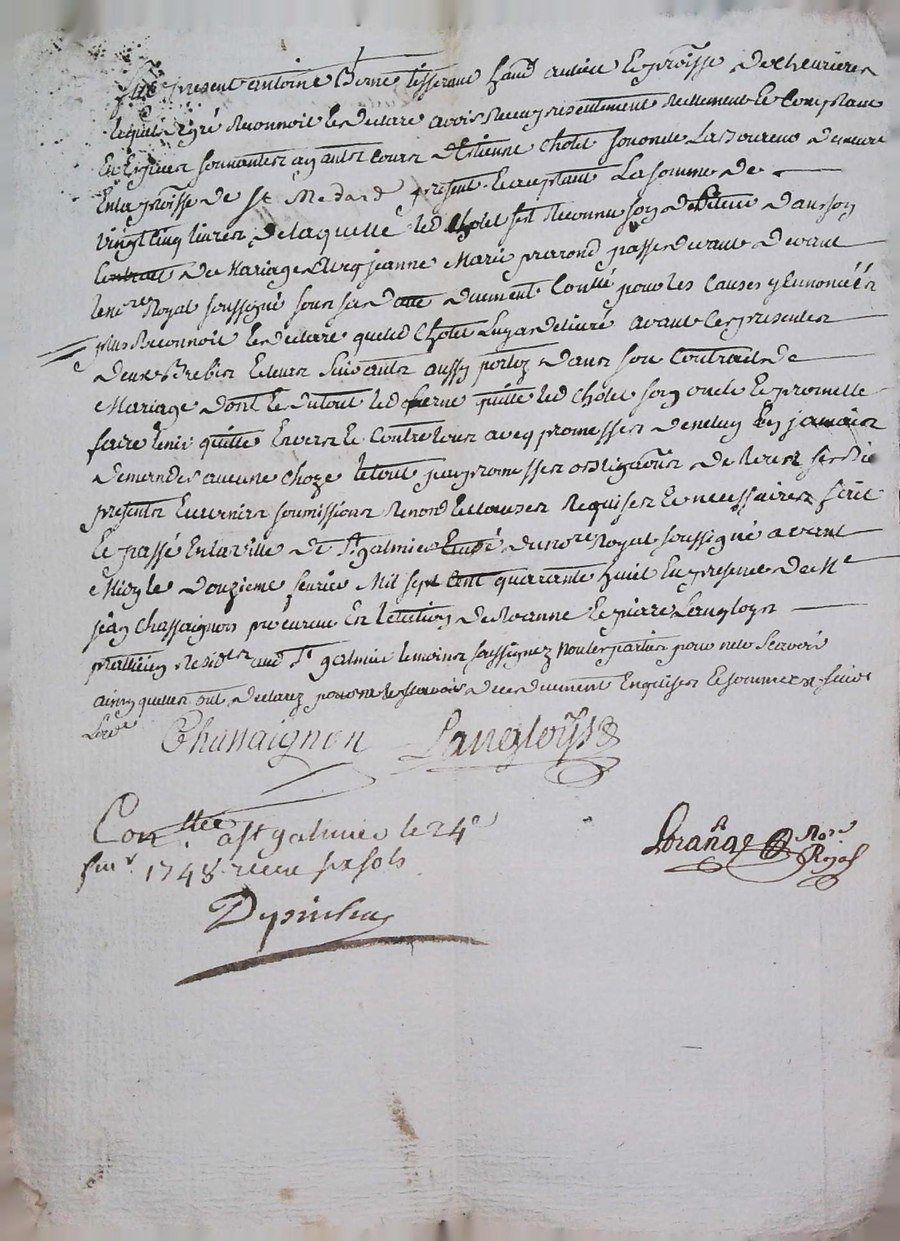 fut present antoine Berne tisserant hant au lieu et proisse de chevrieres
lequel de gré Reconnoit et declare avoir Receu presentement Reellement et Comptant
En Especes sonnantes ayants cours d'Etienne Chotet son oncle Laboureur demeurt
En la proisse de St Medard present Et acceptant La somme de
vingt cinq livres de laquelle led Chotet s'est Reconnu son debiteur dans son
Contrat de Mariage avecq jeanne Marie passé devant
le nore Royal soussigné sous sa datte duement Conllé pour les causes y Ennoncées
plus Reconnoit et declare que led Chotet Luy a delivré avant Ces presentes
deux Brebis Et leurs suivants aussy portez dans son Contrat de
Mariage dont et du tout led Berne quitte led Chotet son oncle Et promet le
faire tenir quitte Envers et Contre tous avecq promesses de ne luy En jamais
demander aucune choze Le tout par promesses obligaõn de
presents Et avenirs soumissions Renond et clauses Requises Et necessaires fait
Et passé En la ville de St galmier Etude du nore Royal soussigné avant
Midy le douzieme fevrier Mil sept Cent quarante huit En presence de Me
jean Chassaignon procureur En lelection de Roanne Et pierre Langloys
praticien Residts aud St galmier temoins soussignez non les parties pour ne le scavoir
ainsy quelles ont declaré de ce duement Enquises Et sommées suivt
Lorde
Chassaignon Langloys
Conllée a st galmier le 24e
fevr 1748 receu six sols
Nore
Royal